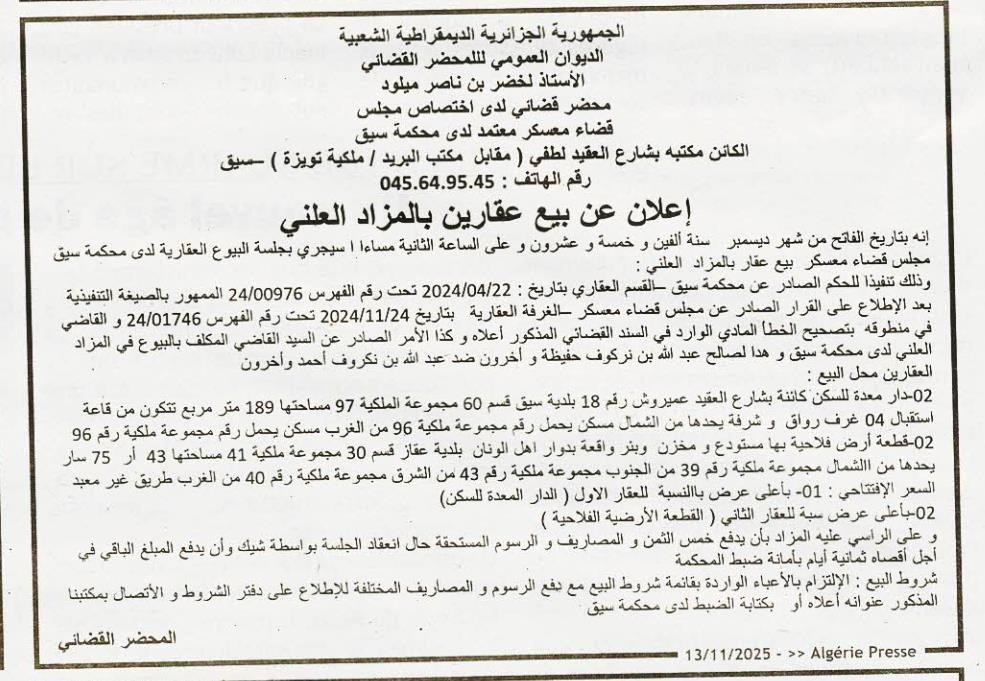 الجمهورية الجزائرية الديمقراطية الشعبية
الديوان العمومي لللمحضر القضائي
الأستاذ لخضر بن ناصر ميلود
محضر قضائي لدى اختصاص مجلس
قضاء معسكر معتمد لدى محكمة سيق
الكائن مكتبه بشارع العقيد لطفي ( مقابل مكتب البريد / ملكية تويزة ) –سيق
رقم الهاتف : 045.64.95.45
إعلان عن بيع عقارين بالمزاد العلني
إنه بتاريخ الفاتح من شهر ديسمبر سنة ألفين و خمسة و عشرون و على الساعة الثانية مساءا ا سيجري بجلسة البيوع العقارية لدى محكمة سيق
مجلس قضاء معسكر بيع عقار بالمزاد العلني :
وذلك تنفيذا للحكم الصادر عن محكمة سيق –القسم العقاري بتاريخ : 2024/04/22 تحت رقم الفهرس 24/00976 الممهور بالصيغة التنفيذية
بعد الإطلاع على القرار الصادر عن مجلس قضاء معسكر –الغرفة العقارية بتاريخ 2024/11/24 تحت رقم الفهرس 24/01746 و القاضي
في منطوقه بتصحيح الخطأ المادي الوارد في السند القضائي المذكور أعلاه و كذا الأمر الصادر عن السيد القاضي المكلف بالبيوع في المزاد
العلني لدى محكمة سيق و هذا لصالح عبد الله بن نركوف حفيظة و أخرون ضد عبد الله بن نكروف أحمد وأخرون
العقارين محل البيع :
02-دار معدة للسكن كائنة بشارع العقيد عميروش رقم 18 بلدية سيق قسم 60 مجموعة الملكية 97 مساحتها 189 متر مربع تتكون من قاعة
استقبال 04 غرف رواق و شرفة يحدها من الشمال مسكن يحمل رقم مجموعة ملكية 96 من الغرب مسكن يحمل رقم مجموعة ملكية رقم 96
02-قطعة أرض فلاحية بها مستودع و مخزن وبئر واقعة بدوار اهل الونان بلدية عقاز قسم 30 مجموعة ملكية 41 مساحتها 43 أر 75 سار
يحدها من االشمال مجموعة ملكية رقم 39 من الجنوب مجموعة ملكية رقم 43 من الشرق مجموعة ملكية رقم 40 من الغرب طريق غير معبد
السعر الإفتتاحي : 01- بأعلى عرض باالنسبة للعقار الاول ( الدار المعدة للسكن)
02-بأعلى عرض سبة للعقار الثاني ( القطعة الأرضية الفلاحية )
و على الراسي عليه المزاد بأن يدفع خمس الثمن و المصاريف و الرسوم المستحقة حال انعقاد الجلسة بواسطة شيك وأن يدفع المبلغ الباقي في
أجل أقصاه ثمانية أيام بأمانة ضبط المحكمة
شروط البيع : الإلتزام بالأعباء الواردة بقائمة شروط البيع مع دفع الرسوم و المصاريف المختلفة للإطلاع على دفتر الشروط و الأتصال بمكتبنا
المذكور عنوانه أعلاه أو بكتابة الضبط لدى محكمة سيق
المحضر القضائي
13/11/2025 - >> Algérie Presse